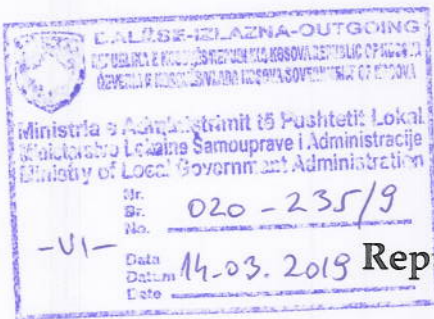 DALËSE-IZLAZNA-OUTGOING
REPUBLIKA E KOSOVËS/REPUBLIKA KOSOVA/REPUBLIC OF KOSOVA
QEVERIA E KOSOVËS/VLADA KOSOVA/GOVERNMENT OF KOSOVA
Ministria e Administrimit të Pushtetit Lokal
Ministarstvo Lokalne Samouprave i Administracije
Ministry of Local Government Administration
Nr.
Br. 020-235/9
No.
-VI-
Data
Datum 14-03. 2019 Rep
Date